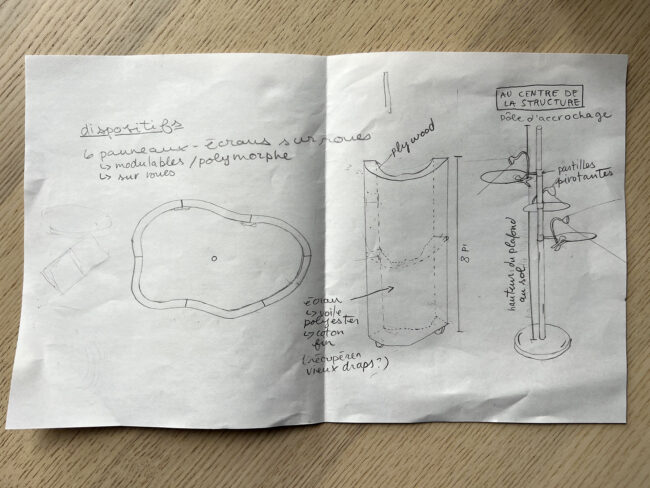 dispositifs
6 panneaux-écrans sur roues
↳ modulables/polymorphe
↳ sur roues
plywood
8 pi
écran
↳ voile
polyester
↳ coton
fin
(récupérer
vieux draps?)
AU CENTRE DE
LA STRUCTURE
Pôle d'accrochage
pastilles
pivotantes
hauteur du plafond
au sol